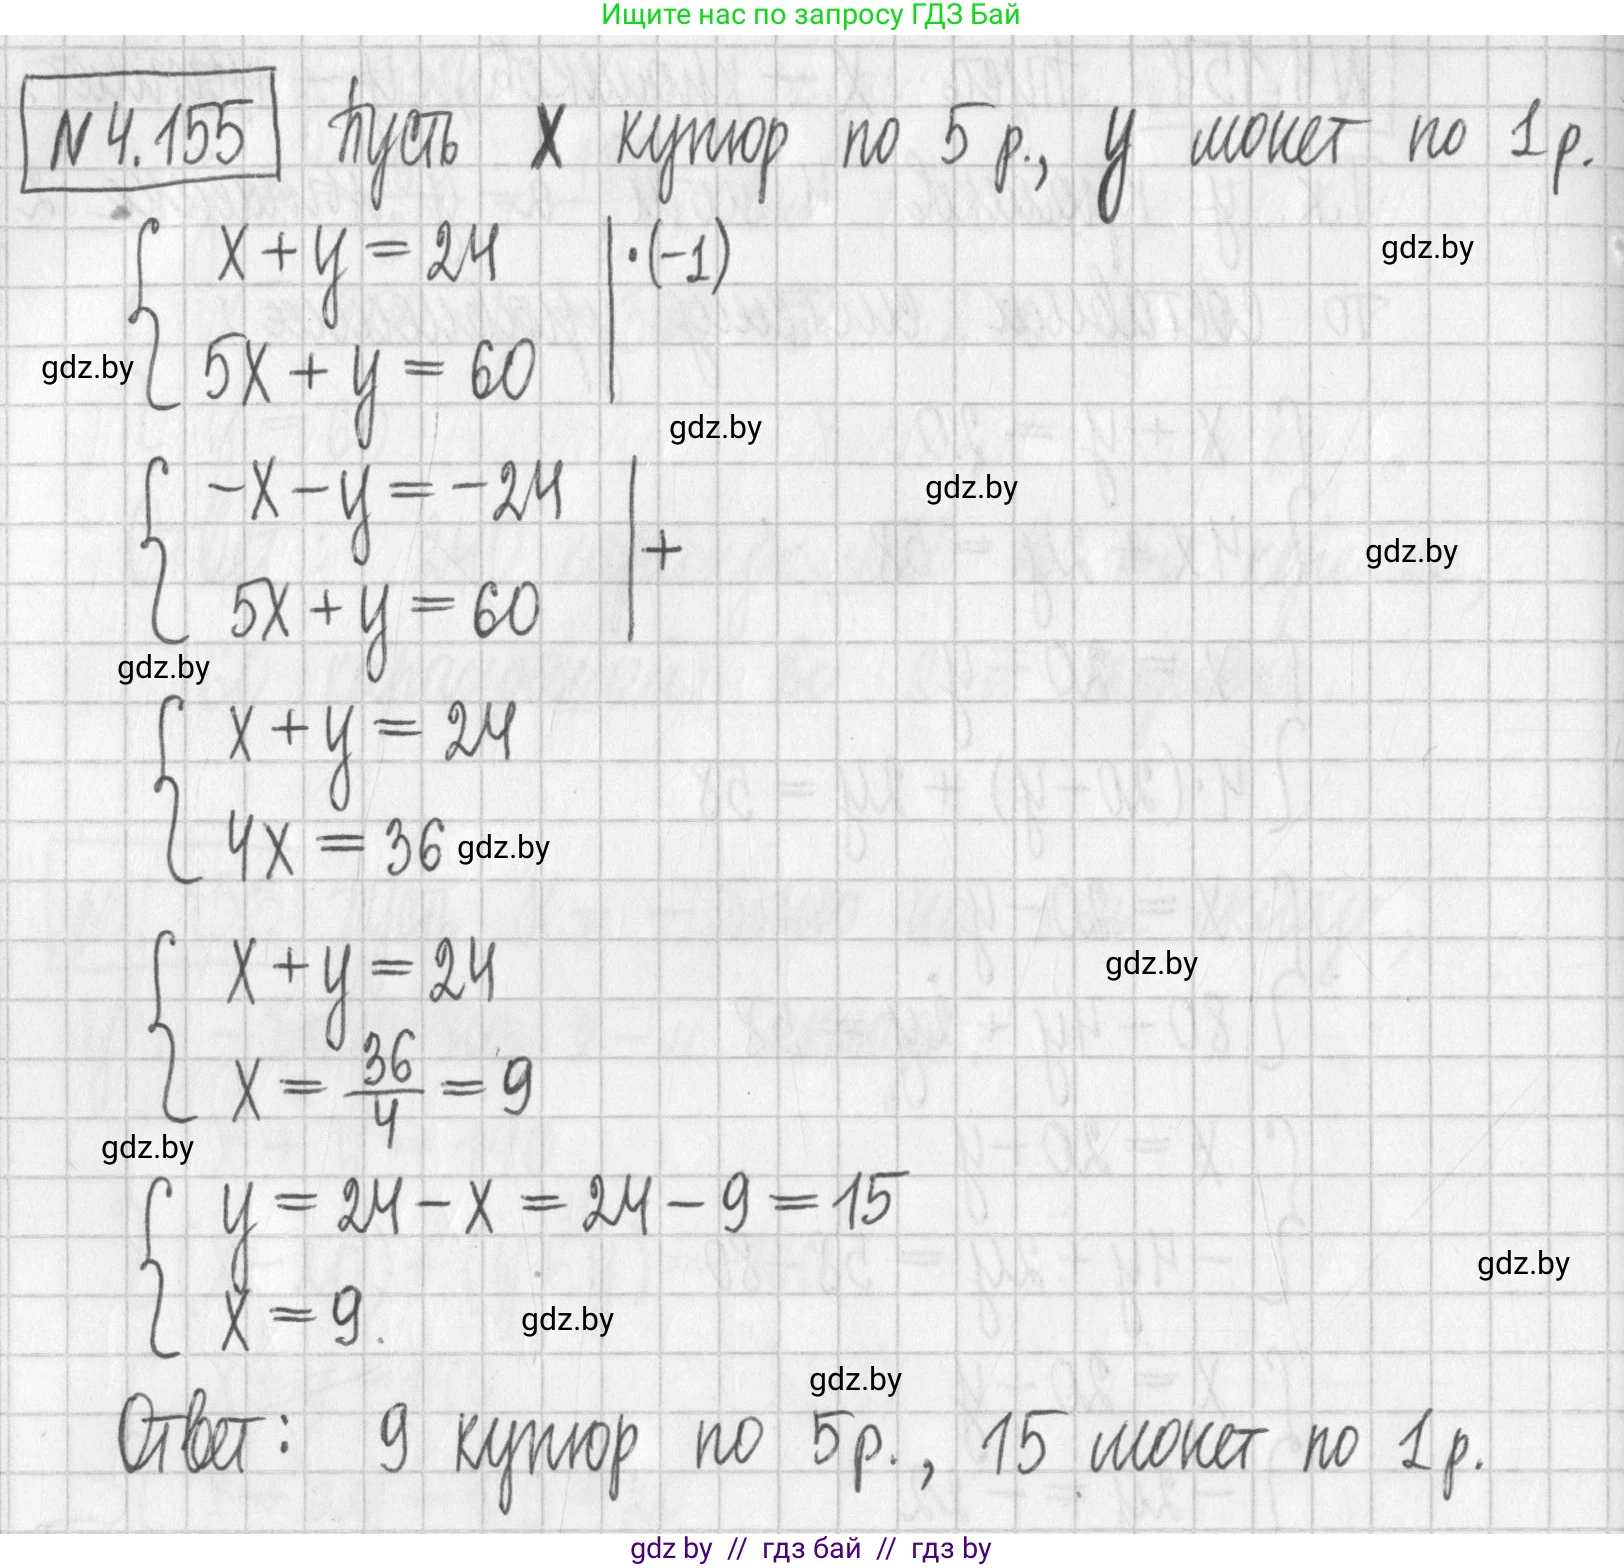 Ищите нас по запросу ГДЗ Бай
N 4.155 Пусть x купюр по 5 р., y монет по 1 р.
x + y = 24 | · (-1)
gdz.by
5x + y = 60
gdz.by
gdz.by
-x - y = -24
gdz.by
+
gdz.by
5x + y = 60
gdz.by
x + y = 24
4x = 36
gdz.by
x + y = 24
gdz.by
x = 36/4 = 9
gdz.by
y = 24 - x = 24 - 9 = 15
gdz.by
x = 9.
gdz.by
gdz.by
Ответ: 9 купюр по 5 р., 15 монет по 1 р.
gdz by // гдз бай // гдз by